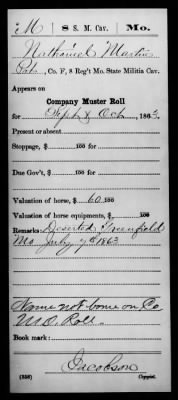 M | 8 S. M. Cav. | Mo.
Nathaniel Martin
Pvt., Co. F, 8 Reg't Mo. State Militia Cav.
Appears on
Company Muster Roll
for Sept & Oct, 1863.
Present or absent
Stoppage, $ 100 for
Due Gov't, $ 100 for
Valuation of horse, $ 60 100
Valuation of horse equipments, $ 100
Remarks: Deserted Greenfield
Mo July 7th 1863
Name not borne on Co.
M.O. Roll.
Book mark:
Jacobson
(358) Copyist.